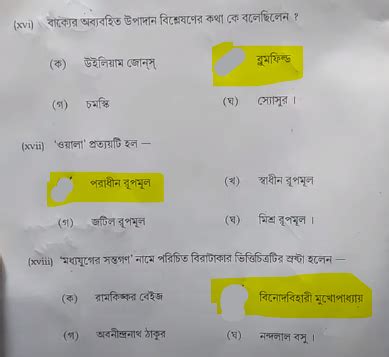 (xvi) বাক্যের অব্যবহিত উপাদান বিশ্লেষণের কথা কে বলেছিলেন ?
(ক) উইলিয়াম জোন্‌স্ ব্লুমফিল্ড
(গ) চমস্কি (ঘ) সোস্যুর ।
(xvii) 'ওয়ালা' প্রত্যয়টি হল —
পরাধীন রূপমূল (খ) স্বাধীন রূপমূল
(গ) জটিল রূপমূল (ঘ) মিশ্র রূপমূল ।
(xviii) 'মধ্যযুগের সন্তগণ' নামে পরিচিত বিরাটাকার ভিত্তিচিত্রটির স্রষ্টা হলেন —
(ক) রামকিঙ্কর বেইজ বিনোদবিহারী মুখোপাধ্যায়
(গ) অবনীন্দ্রনাথ ঠাকুর (ঘ) নন্দলাল বসু ।